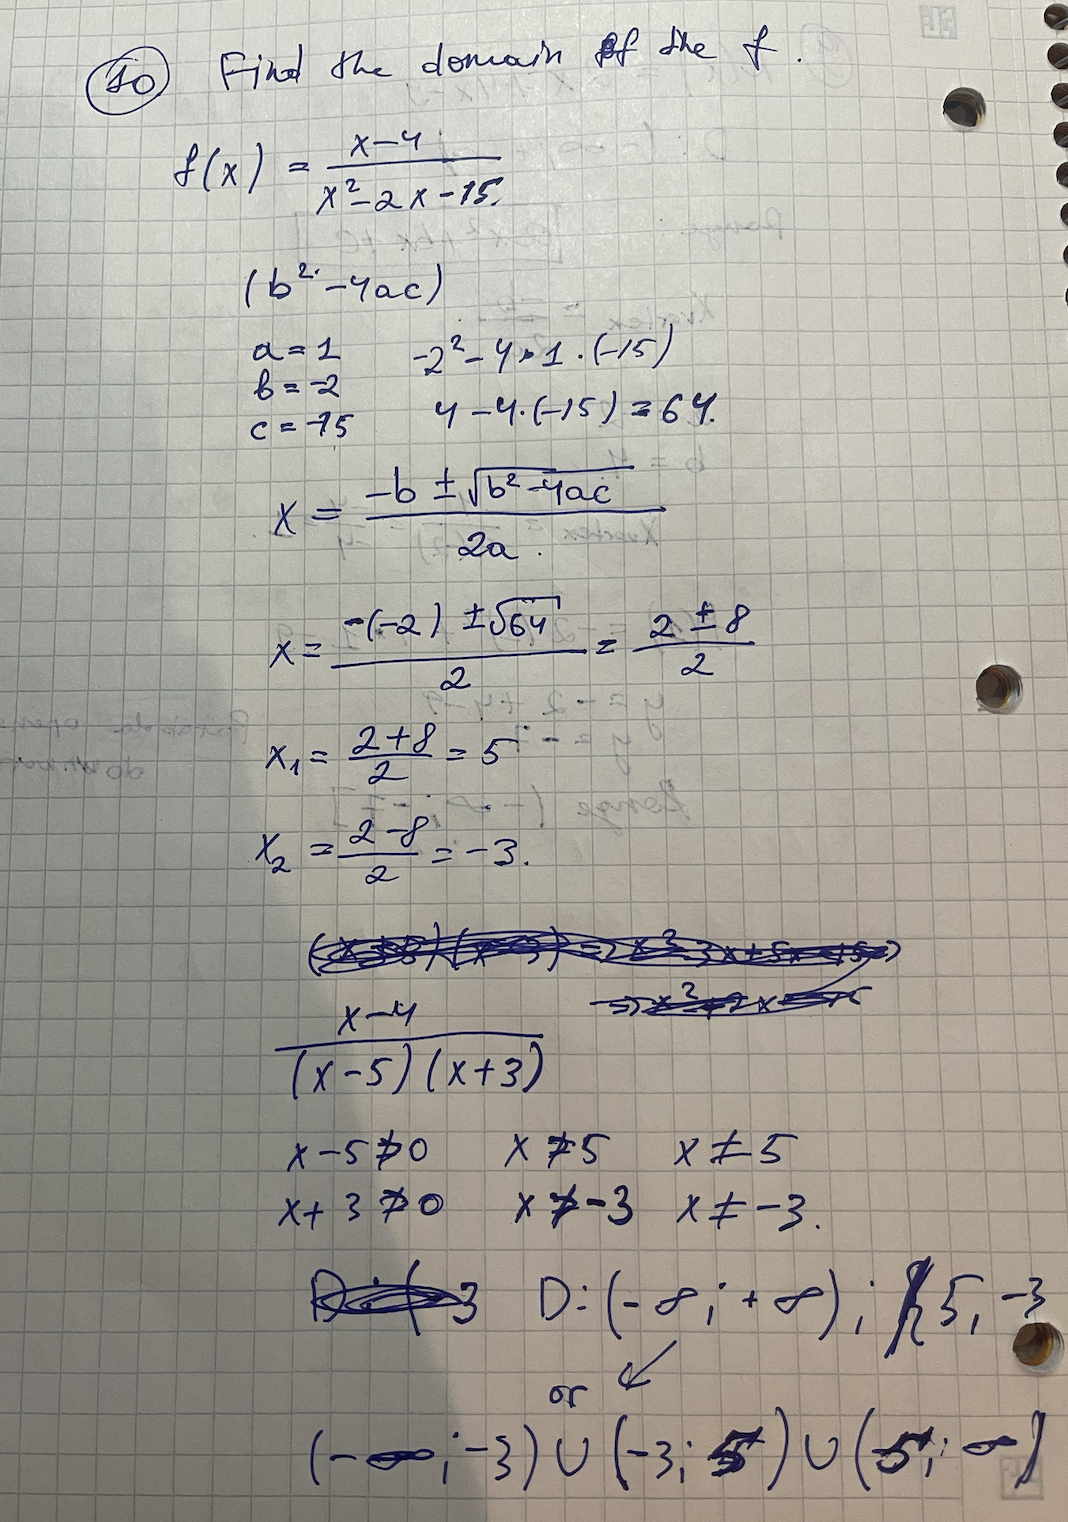 10 Find the domain of the f.
f(x) = x-4 / x²-2x-15.
(b²-4ac)
a=1 -2²-4·1·(-15)
b=-2
4-4·(-15)=64.
c=-15
x = -b ± √b²-4ac / 2a.
x = -(-2) ± √64 / 2 = 2 ± 8 / 2
x₁ = 2+8 / 2 = 5
x₂ = 2-8 / 2 = -3.
x-4 / (x-5)(x+3)
x-5≠0 x≠5 x≠5
x+3≠0 x≠-3 x≠-3.
D:(-∞;+∞); 5, -3
or
(-∞;-3)∪(-3;5)∪(5;∞)